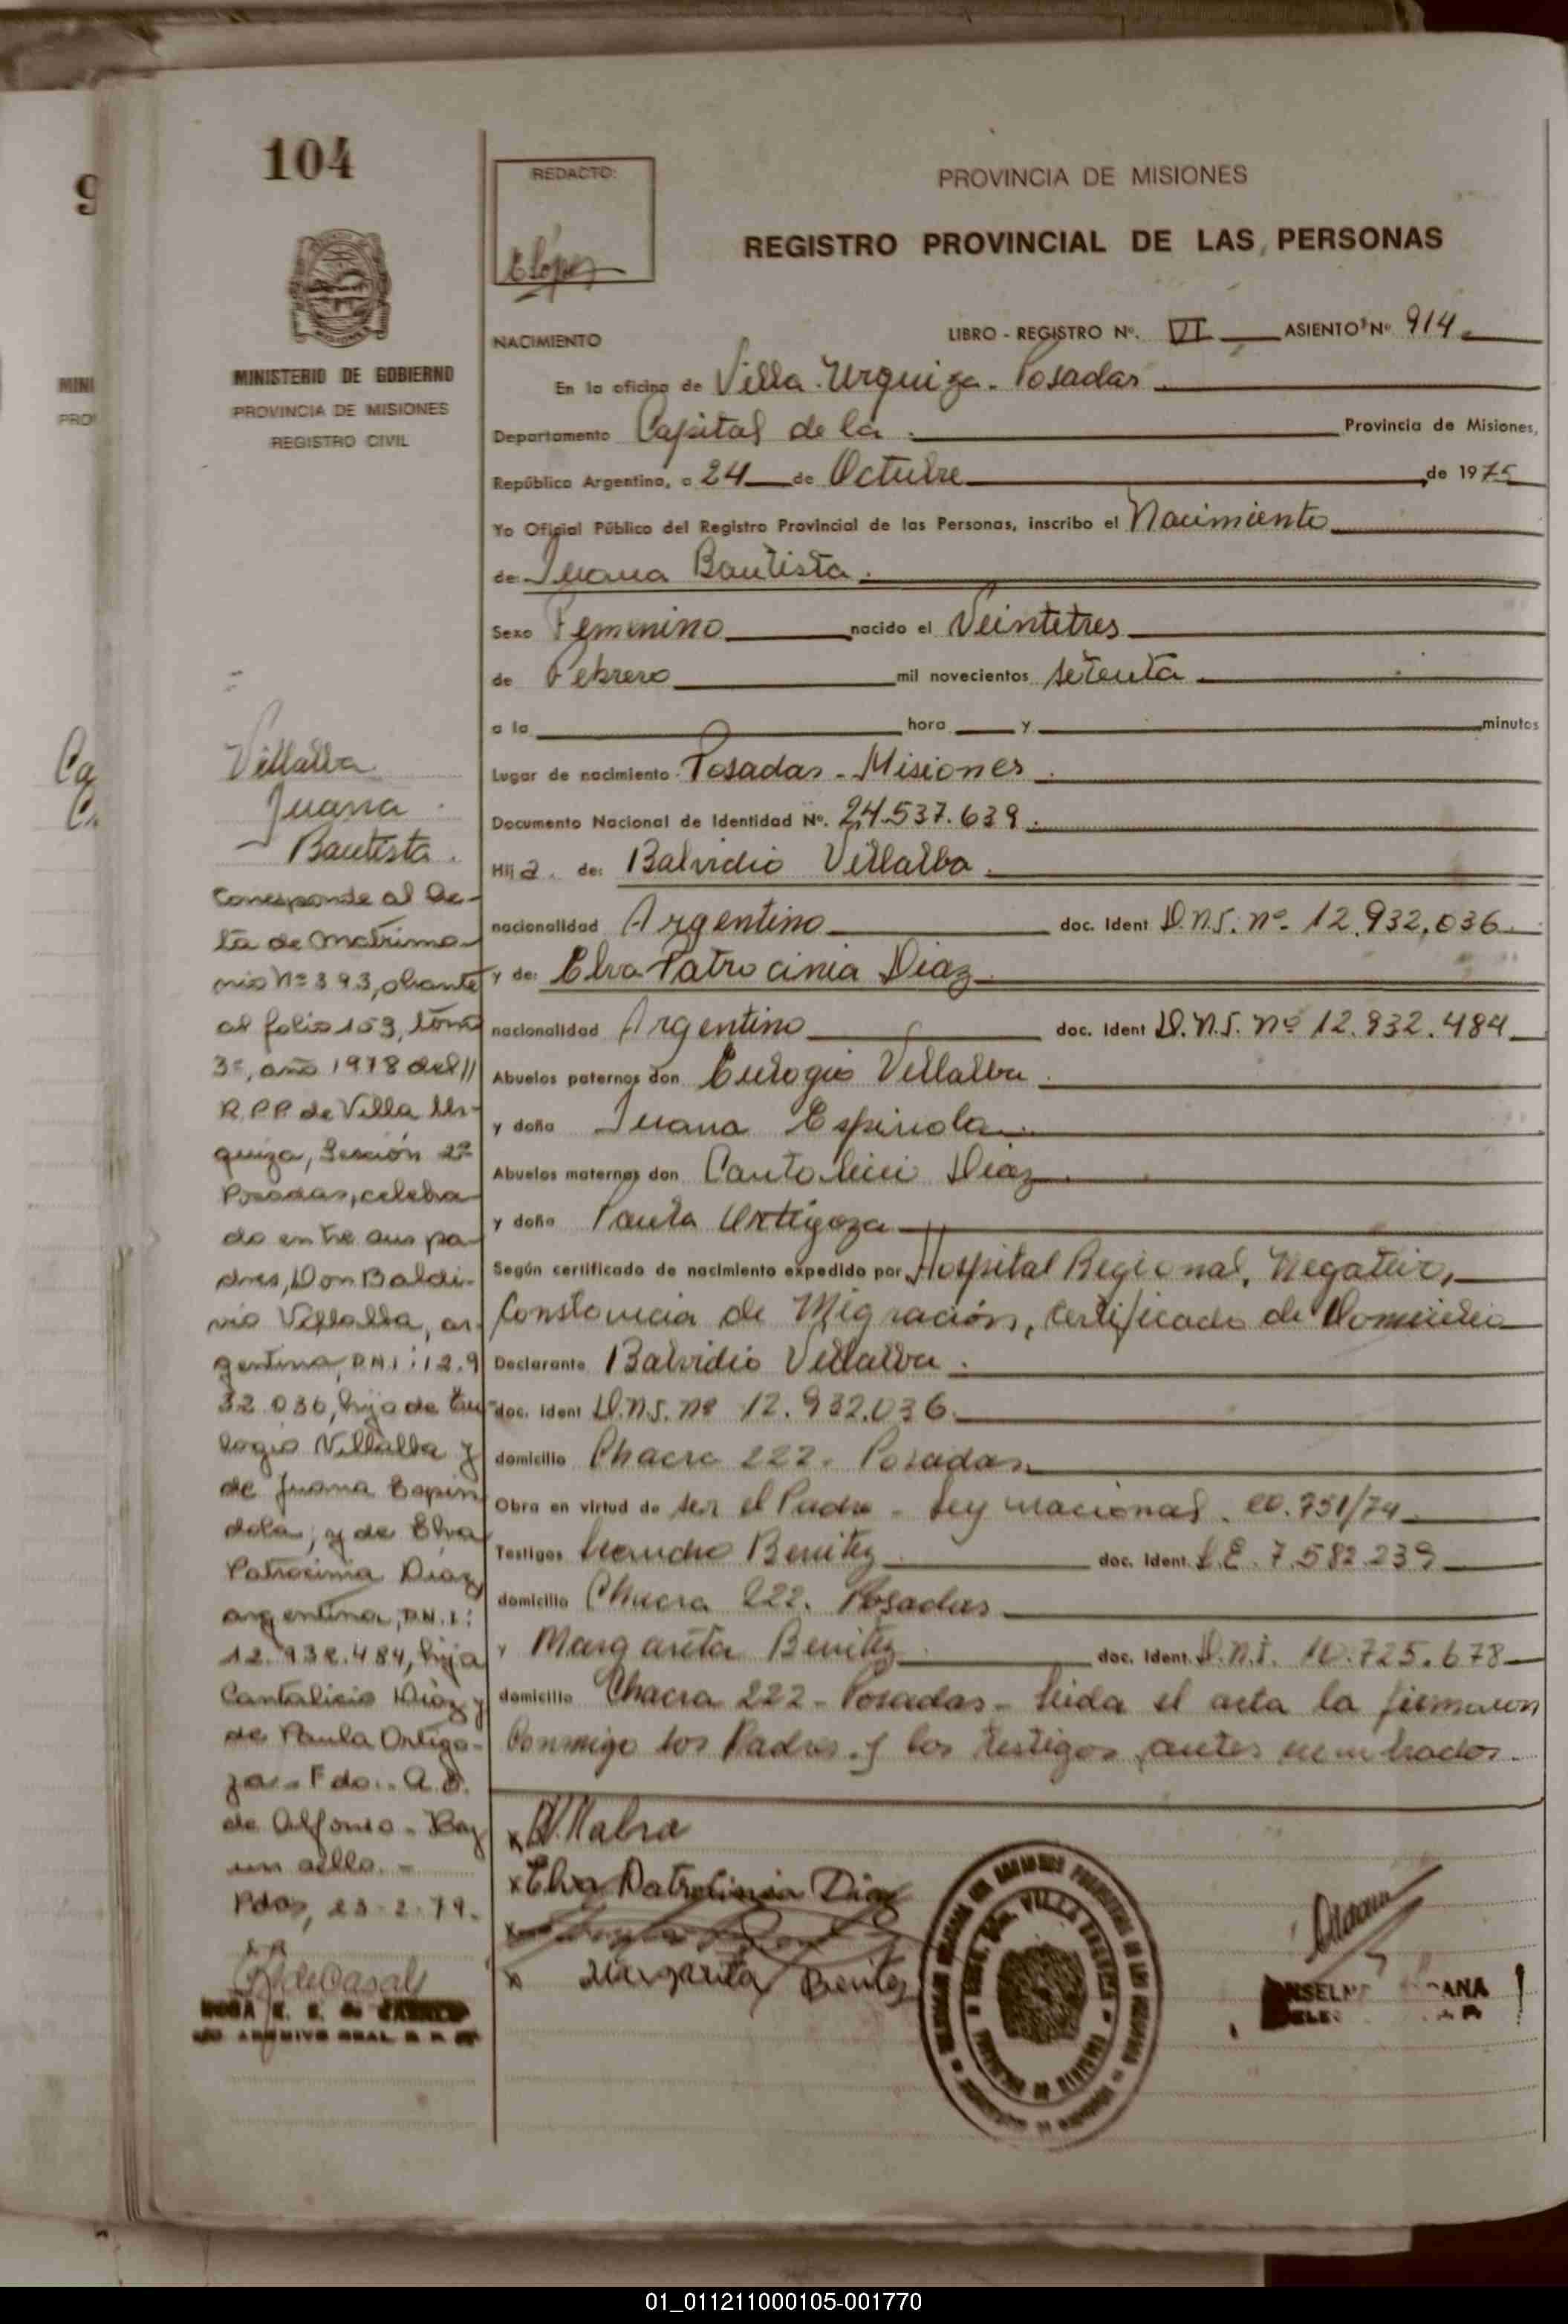 104
MINISTERIO DE GOBIERNO
PROVINCIA DE MISIONES
REGISTRO CIVIL
REDACTO:
E López
PROVINCIA DE MISIONES
REGISTRO PROVINCIAL DE LAS PERSONAS
NACIMIENTO
LIBRO - REGISTRO Nº. VI ASIENTO Nº 914
En la oficina de Villa Urquiza - Posadas
Departamento Capital de la Provincia de Misiones,
República Argentina, a 24 de Octubre de 1975
Yo Oficial Público del Registro Provincial de las Personas, inscribo el Nacimiento
de: Juana Bautista
Sexo Femenino nacido el Veintetres
de Febrero mil novecientos setenta
a la hora y minutos
Lugar de nacimiento Posadas - Misiones
Documento Nacional de Identidad Nº. 24.537.639
Hija de: Balvidio Villalba
nacionalidad Argentino doc. Ident D.N.I. nº 12.932.036
y de: Elva Patrocinia Diaz
nacionalidad Argentino doc. Ident D.N.I. nº 12.932.484
Abuelos paternos don Eulogio Villalba
y doña Juana Espinola
Abuelos maternos don Cantolicio Diaz
y doña Paula Ortigoza
Según certificado de nacimiento expedido por Hospital Regional, Negativo,
Constancia de Migración, Certificado de Domicilio
Declarante Balvidio Villalba
doc. Ident D.N.I. nº 12.932.036
domicilio Chacra 222 - Posadas
Obra en virtud de ser el Padre - Ley nacional 20.751/74
Testigos Benitez doc. Ident. L.E. 7.582.239
domicilio Chacra 222. Posadas
y Margarita Benitez doc. Ident. D.N.I. 10.725.678
domicilio Chacra 222 - Posadas - Leida el acta la firmaron
Conmigo los Padres y los testigos antes nombrados.
Villalba
Juana
Bautista.
Corresponde al Ac-
ta de Matrimo-
nio Nº 393, obrante
al folio 153, tomo
3º, año 1978 del
R.P.P. de Villa Ur-
quiza, Sección 2ª
Posadas, celebra
do entre sus pa-
dres, Don Baldi-
vio Villalba, ar-
gentino, D.N.I: 12.9
32.036, hijo de Eu-
logio Villalba y
de Juana Espin
dola, y de Elva
Patrocinia Díaz
argentina, D.N.I:
12.932.484, hija
Cantalicio Díaz y
de Paula Ortigo-
za. - Fdo.: A.B.
de Alfonso - Hay
un sello. -
Pdas, 23-2-79.
x Villalva
x Elva Patrocinia Diaz
x Margarita Benitez
01_011211000105-001770